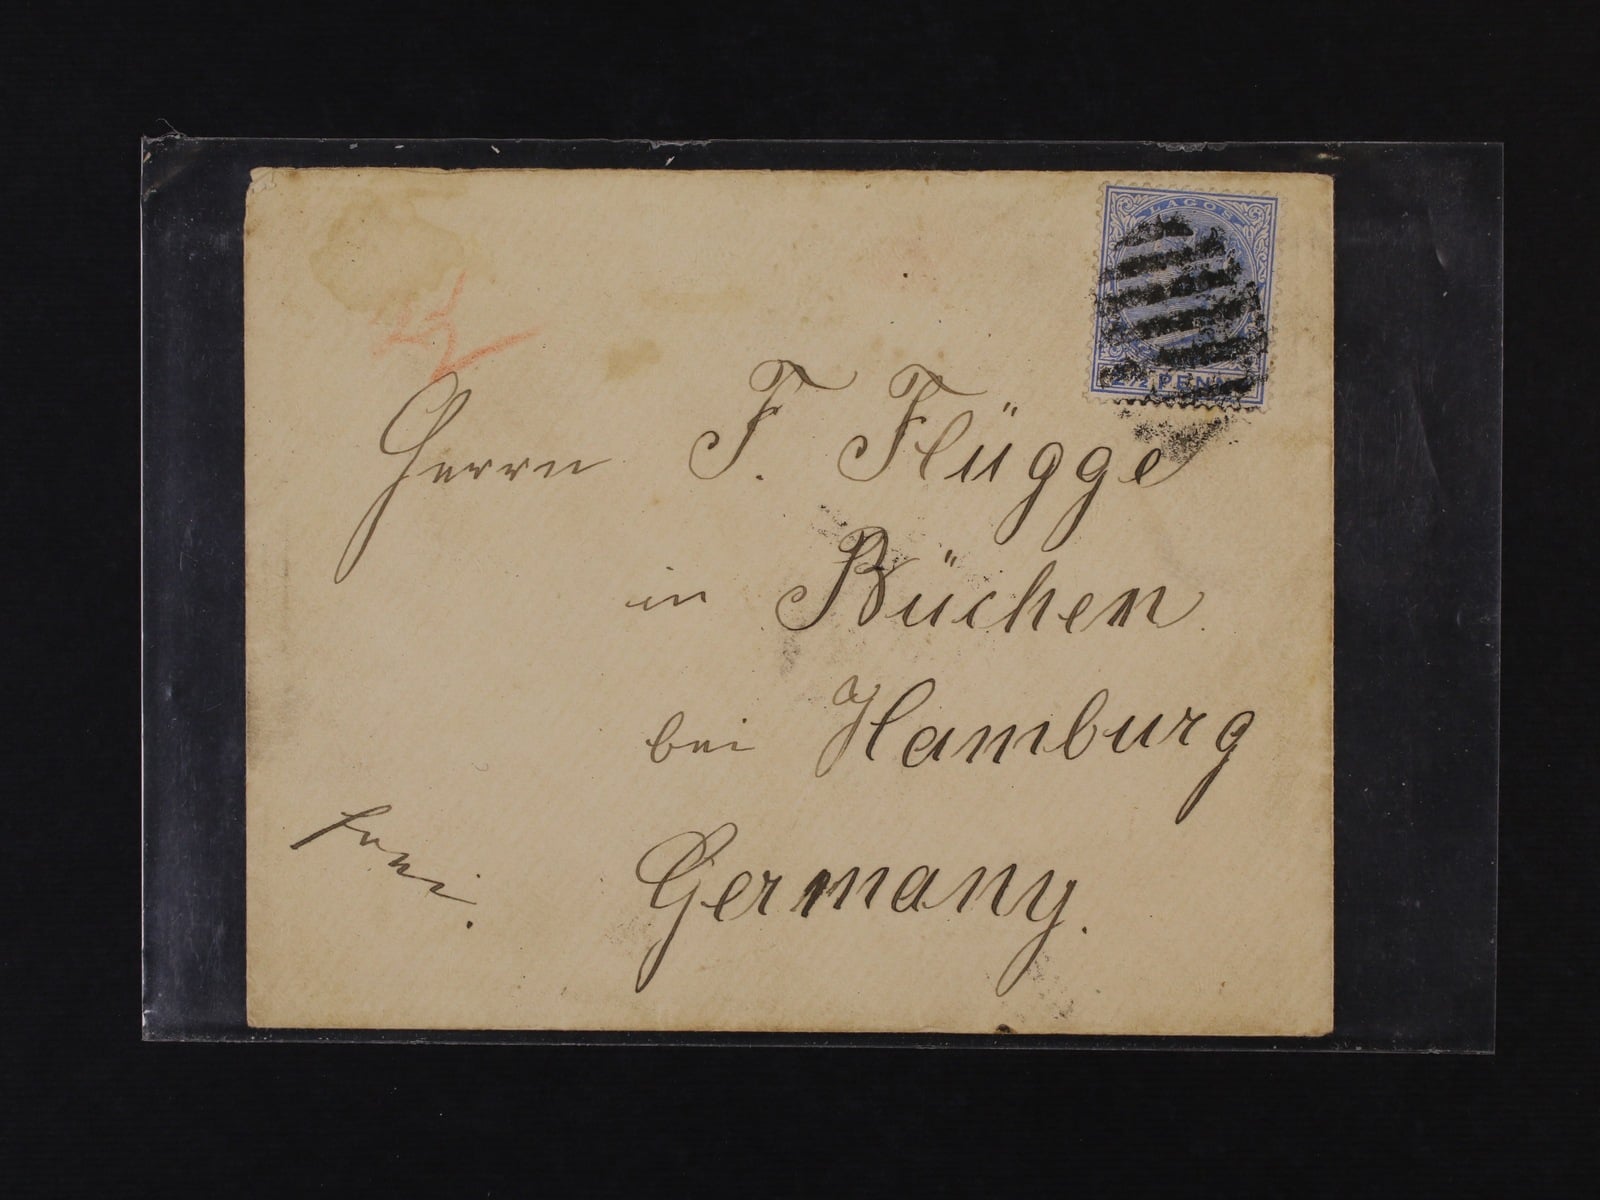 LAGOS
2½ PENN
Herrn F. Flügge
in Büchen
bei Hamburg
Germany.
frei.